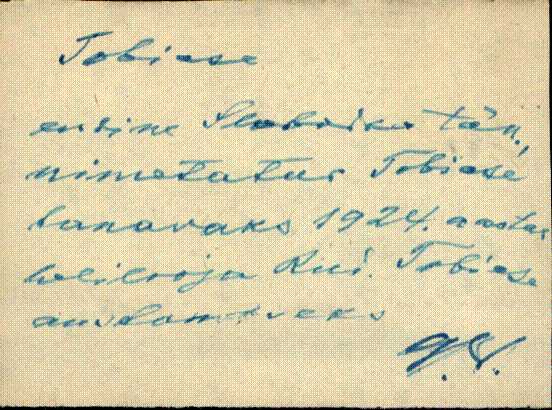 Tobiase
endine Slobodka tän.,
nimetatud Tobiase
tänavaks 1924. aastal
helilooja Rud. Tobiase
austamiseks